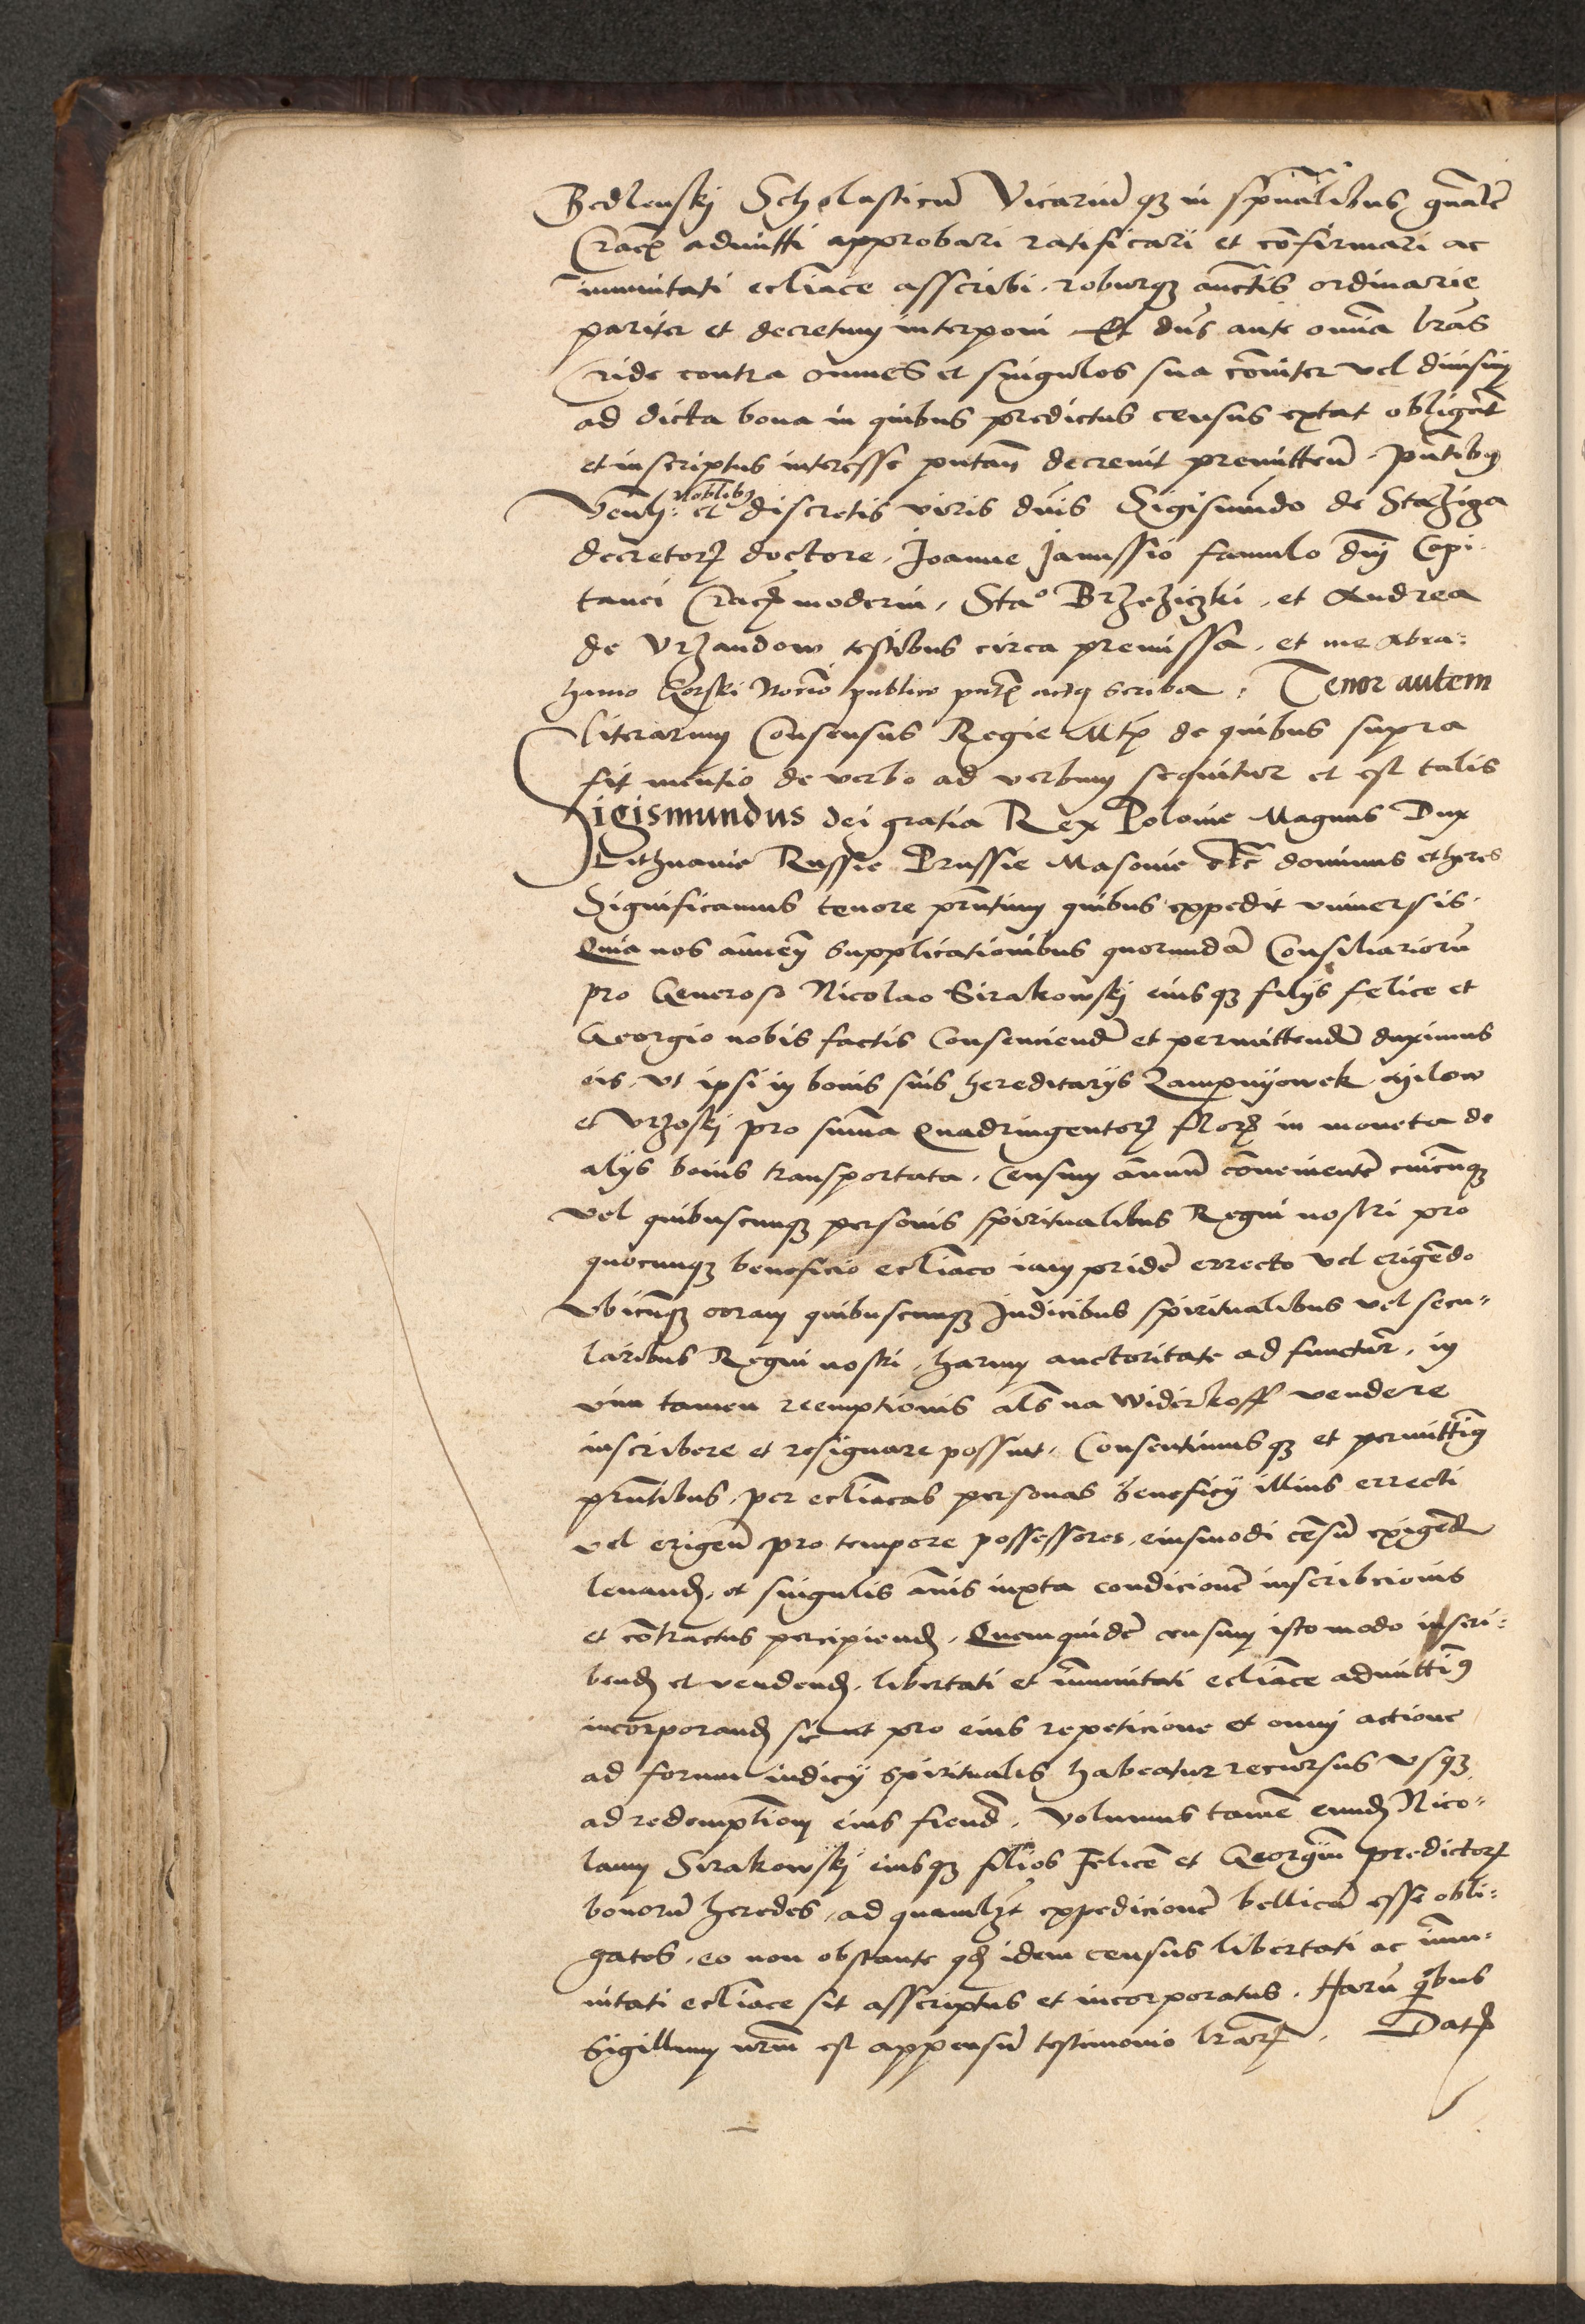 Bedlenskj Scholasticũ Vicariũ qȝ in spũalibus gñalẽ
Craꝯ admitti approbari ratificari et cõfirmari ac
immitati ecliace asscribi, roburqȝ auctĩs ordinarie
pariter et decretum interponi Et dñs ante omĩa lrãs
ride contra omnes et singulos sua cõiter vel diuisim
ad dicta bona in quibus predictus census extat obligat̃
et inscriptus interesse putañ decreuit premitteñ. Pñtibus
Venlꝫ: noblibꝫ et discretis viris dñis Sigismũdo de Stazicza
decretorꝫ doctore, Joanne Janussio famulo dñj Capi-
tanei Craꝯ moderni, Sta° Brzeziczki, et Andrea
de Vrzandow testibus circa premissa, et me Abra:
hamo Gorski Notĩo publico pñtꝫ actꝫ scriba. Tenor autem
literarum Consensus Regie Mtꝫ de quibus supra
fit mentio de verbo ad verbum sequitur et est talis
Sigismundus dei gratia Rex Polonie Magnus Dux
Lithuanie Russie Prussie Masouie etc̃ dominus et heres
Significamus tenore pñtium quibus expedit vniuersis.
Quia nos annueñ supplicationibus quorundã Consiliariorũ
pro Generoso Nicolao Sirakowskj eiusqȝ filijs felice et
Georgio nobis factis Consenciendũ et permittendũ duximus
eis, vt ipsi in bonis suis hereditarijs Zampnyowek, Gilow
et Vrzoskj pro suma Quadringentorꝫ florꝫ in moneta de
alijs bonis transportata, Censum ãnuũ cõuenientẽ cuicũqȝ
vel quibuscunqȝ personis spiritualibus Regni nostri pro
quocunqȝ beneficio ecliaco iam pridẽ errecto vel erigẽdo
Vbicũqȝ coram quibuscunqȝ Judicibus spiritualibus vel secu-
laribus Regni nostri, harum auctoritate ad functur̃, in
vim tamen reemptionis als̃ na widerkoff vendere
inscribere et resignare possint. Consentimusqȝ et permittimꝰ
pñtibus, per ecliacas personas beneficij illius errecti
vel erigeñ pro tempore possessores, eiusmodi cẽsũ exigeñd
leuandꝫ, et singulis ãnis iuxta condicionẽ inscribcionis
et cõtractus percipiendꝫ, Quemquidẽ censum isto modo inscri:
bendꝫ et vendendꝫ, libertati et ĩmunitati ecliace admittimꝰ
incorporandꝫ sic vt pro eius repeticione et omni actione
ad forum iudicij spiritualis habeatur recursus vsqȝ
ad redemptiõem eius fiend̃. Volumus tamẽ eundꝫ Nico-
laum Sirakowskj eiusqȝ filios Felicẽ et Georgiũm predictorꝫ
bonorũ heredes, ad quamlꝫt expedicionẽ bellicã esse obli:
gatos, eo non obstante qdꝫ idem census libertati ac ĩmu-
nitati ecliace sit asscriptus et incorporatus. Harũ qꝰibus
Sigillum nrũm est appensũ testimonio lrarꝫ. Datꝫ